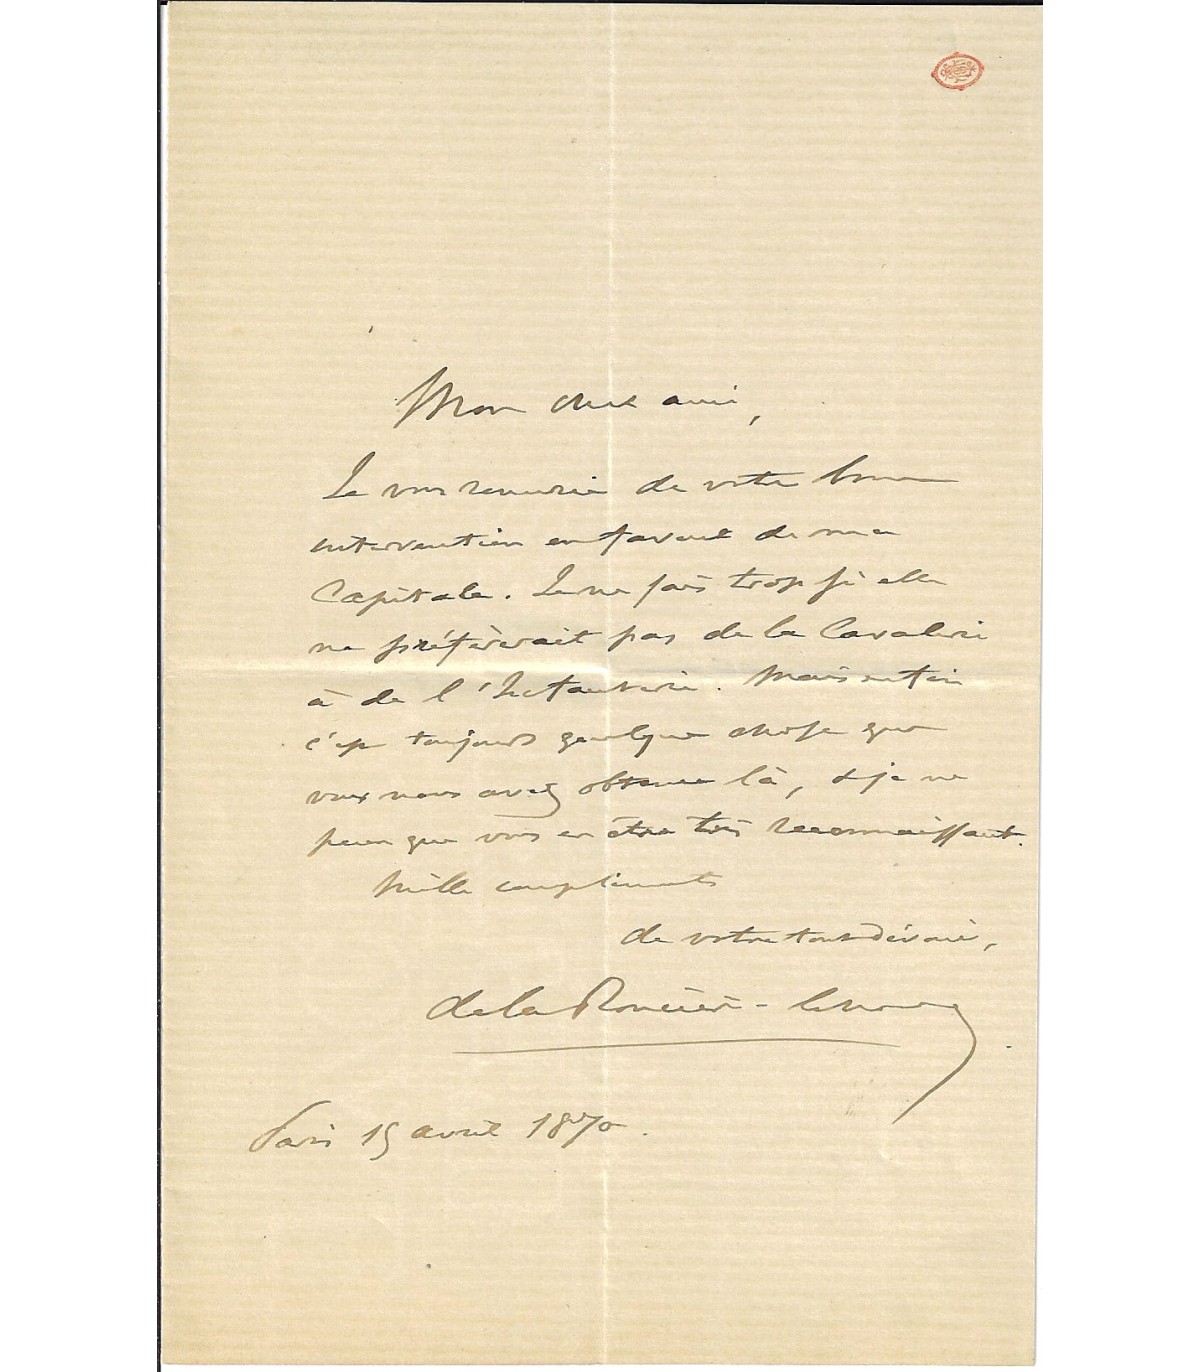 Mon cher ami,
Je vous remercie de votre bonne
intervention en faveur de ma
Capitale. Je ne sais trop si elle
ne préférerait pas de la Cavalerie
à de l'Infanterie. Mais enfin
c'est toujours quelque chose que
vous nous avez obtenu là, & je ne
peux que vous en être très reconnaissant.
Mille compliments
de votre tout dévoué,
de la Roncière-Lenoury
Paris 15 avril 1870.